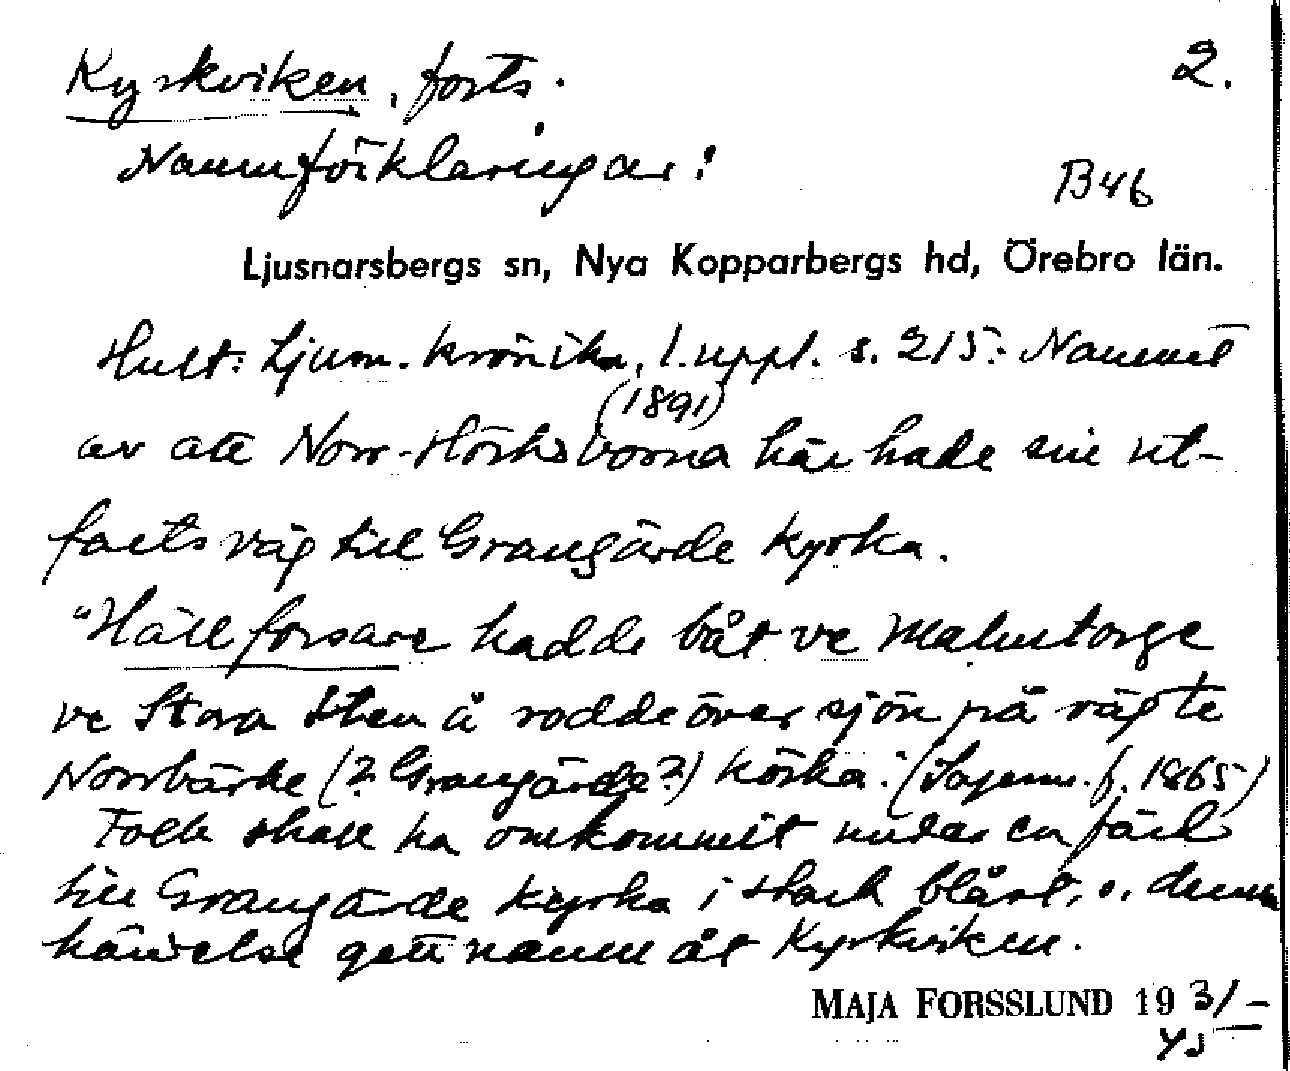 Kyrkviken, forts.
2.
Namnförklaringar:
B46
Ljusnarsbergs sn, Nya Kopparbergs hd, Örebro län.
Hult: Ljusn. krönika, 1. uppl. s. 215: Namnet
(1891)
av att Norr-Hörksborna här hade sin ut-
fartsväg till Grangärde kyrka.
"Hällforsare hadde båt ve Malmtorge
ve Stora Sten å rodde över sjön på väg te
Norrbärke (? Grangärde?) körka." (Sagesm. f. 1865)
Folk skall ha omkommit under en färd
till Grangärde kyrka i stark blåst, o. denna
händelse gett namn åt Kyrkviken.
MAJA FORSSLUND 1931/-